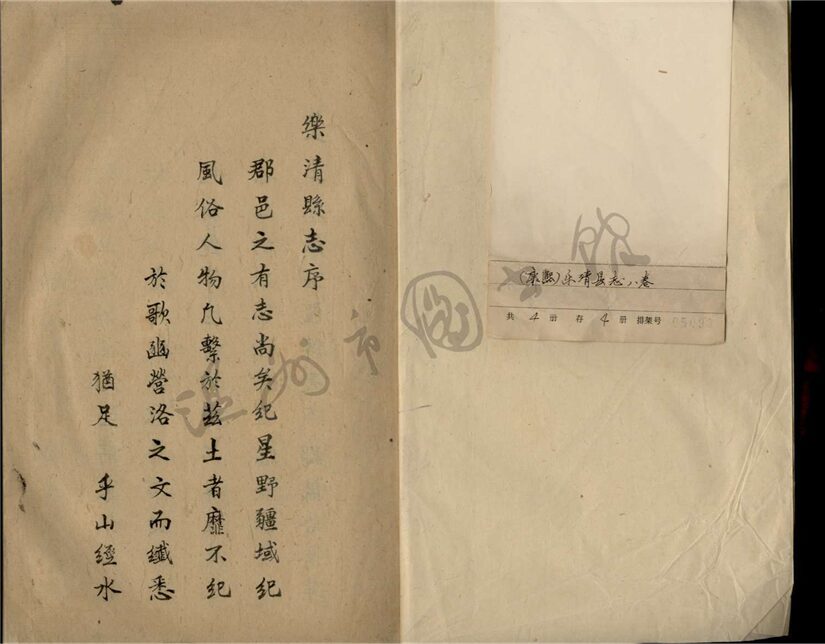 (康熙)乐清县志八卷
共 4 册 存 4 册 排架号
樂清縣志序
郡邑之有志尚矣紀星野疆域紀
風俗人物凡繫於茲土者靡不紀
於歌豳營洛之文而纖悉
猶足 乎山經水
温州市图书馆